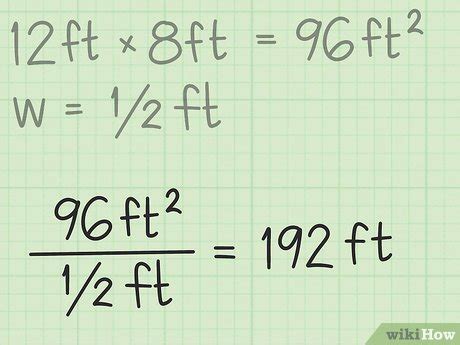 12ft × 8ft = 96ft²
w = 1/2 ft
96 ft²
1/2 ft
= 192 ft
wikiHow